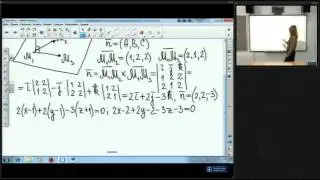 n̅ = (A, B, C)
M₁ M₃
M₁M₂ = (1, 2, 2) M₁M₃ = (2, 1, 2)
n̅ = M₁M₂ × M₁M₃ = | i̅ j̅ k̅ | 1 2 2 | 2 1 2 | =
= i̅ |2 2| 1 2| - j̅ |1 2| 2 2| + k̅ |1 2| 2 1| = 2i̅ + 2j̅ - 3k̅, n̅ = (2, 2, -3)
2(x-1)+2(y-1)-3(z+1)=0; 2x-2+2y-2-3z-3=0